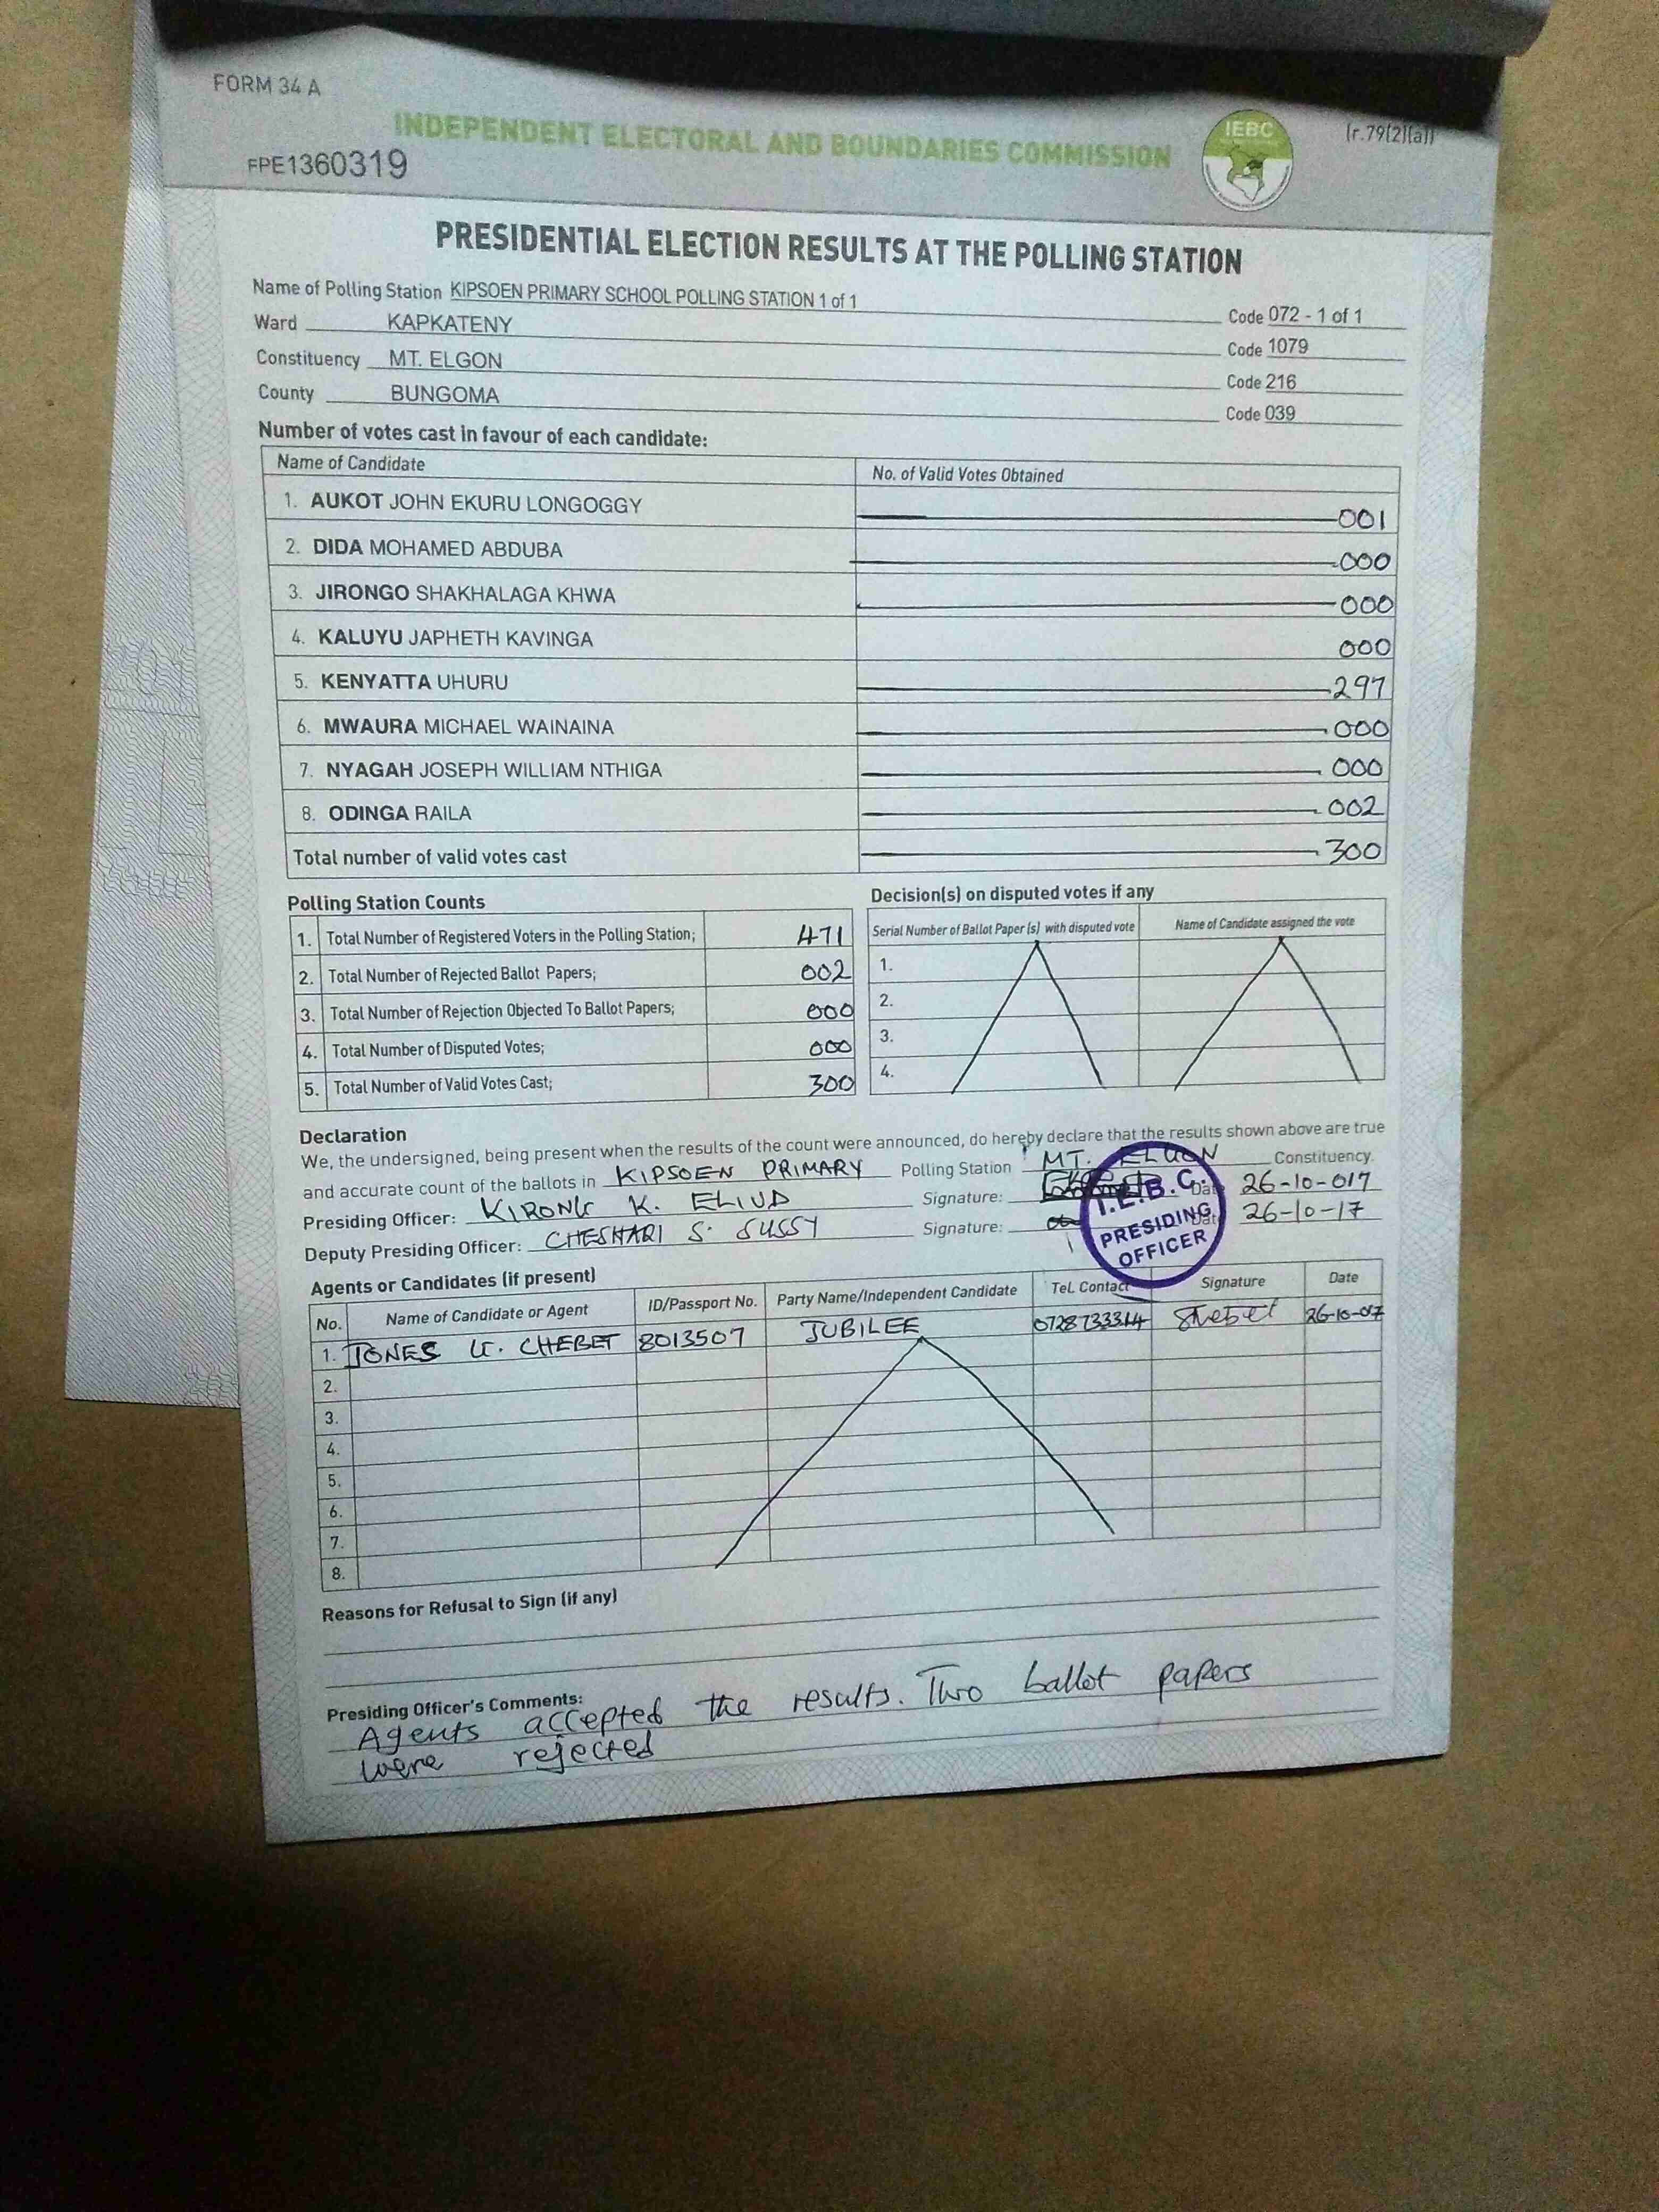 FORM 34 A
INDEPENDENT ELECTORAL AND BOUNDARIES COMMISSION
IEBC
(r.79(2)(a))
FPE1360319
PRESIDENTIAL ELECTION RESULTS AT THE POLLING STATION
Name of Polling Station KIPSOEN PRIMARY SCHOOL POLLING STATION 1 of 1 Code 072 - 1 of 1
Ward KAPKATENY Code 1079
Constituency MT. ELGON Code 216
County BUNGOMA Code 039
Number of votes cast in favour of each candidate:
Name of Candidate No. of Valid Votes Obtained
1. AUKOT JOHN EKURU LONGOGGY 001
2. DIDA MOHAMED ABDUBA 000
3. JIRONGO SHAKHALAGA KHWA 000
4. KALUYU JAPHETH KAVINGA 000
5. KENYATTA UHURU 297
6. MWAURA MICHAEL WAINAINA 000
7. NYAGAH JOSEPH WILLIAM NTHIGA 000
8. ODINGA RAILA 002
Total number of valid votes cast 300
Polling Station Counts
1. Total Number of Registered Voters in the Polling Station; 471
2. Total Number of Rejected Ballot Papers; 002
3. Total Number of Rejection Objected To Ballot Papers; 000
4. Total Number of Disputed Votes; 000
5. Total Number of Valid Votes Cast; 300
Decision(s) on disputed votes if any
Serial Number of Ballot Paper (s) with disputed vote Name of Candidate assigned the vote
1.
2.
3.
4.
Declaration
We, the undersigned, being present when the results of the count were announced, do hereby declare that the results shown above are true
and accurate count of the ballots in KIPSOEN PRIMARY Polling Station MT. ELGON Constituency.
Presiding Officer: KIRONG K. ELIUD Signature: Date 26-10-017
Deputy Presiding Officer: CHESHARI S. SUSSY Signature: Date 26-10-17
I.E.B.C.
PRESIDING
OFFICER
Agents or Candidates (if present)
No. Name of Candidate or Agent ID/Passport No. Party Name/Independent Candidate Tel. Contact Signature Date
1. JONES K. CHEBET 8013507 JUBILEE 26-10-017
2.
3.
4.
5.
6.
7.
8.
Reasons for Refusal to Sign (if any)
Presiding Officer's Comments:
Agents accepted the results. Two ballot papers
were rejected